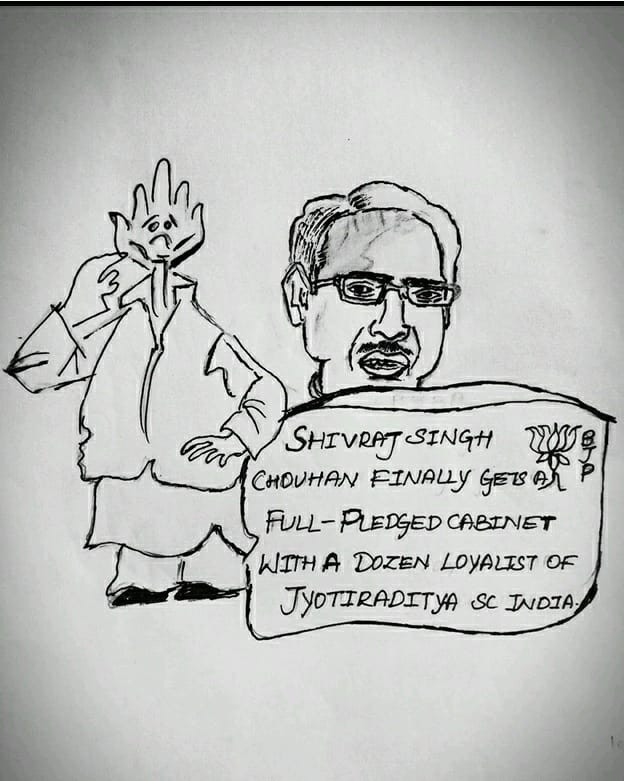 SHIVRAJ SINGH
CHOUHAN FINALLY GETS A
FULL-PLEDGED CABINET
WITH A DOZEN LOYALIST OF
JYOTIRADITYA SC INDIA.
BJP